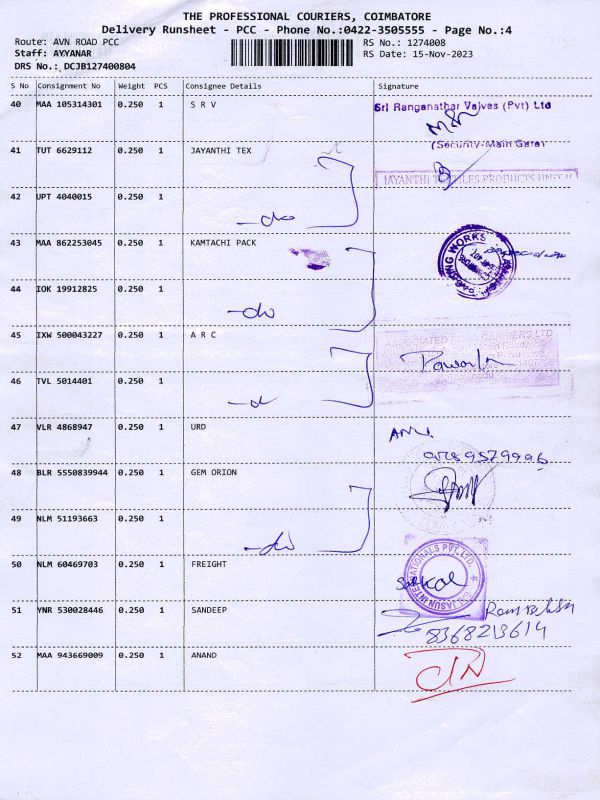 THE PROFESSIONAL COURIERS, COIMBATORE
Delivery Runsheet - PCC - Phone No.:0422-3505555 - Page No.:4
Route: AVN ROAD PCC RS No.: 1274008
Staff: AYYANAR RS Date: 15-Nov-2023
DRS No.: DCJB127400804
S No Consignment No Weight PCS Consignee Details Signature
40 MAA 105314301 0.250 1 S R V Sri Ranganathar Valves (Pvt) Ltd
(Security-Main Gate)
41 TUT 6629112 0.250 1 JAYANTHI TEX
JAYANTHI TEXTILES PRODUCTS UNIT
42 UPT 4040015 0.250 1
-do
43 MAA 862253045 0.250 1 KAMTACHI PACK
PACKING WORKS
44 IOK 19912825 0.250 1
-do
45 IXW 500043227 0.250 1 A R C ASSOCIATED ROAD CARRIERS LTD
46 TVL 5014401 0.250 1
47 VLR 4868947 0.250 1 URD
48 BLR 5550839944 0.250 1 GEM ORION
49 NLM 51193663 0.250 1
-do
50 NLM 60469703 0.250 1 FREIGHT
INTERNATIONALS PVT. LTD.
51 YNR 530028446 0.250 1 SANDEEP
8368213614
52 MAA 943669009 0.250 1 ANAND